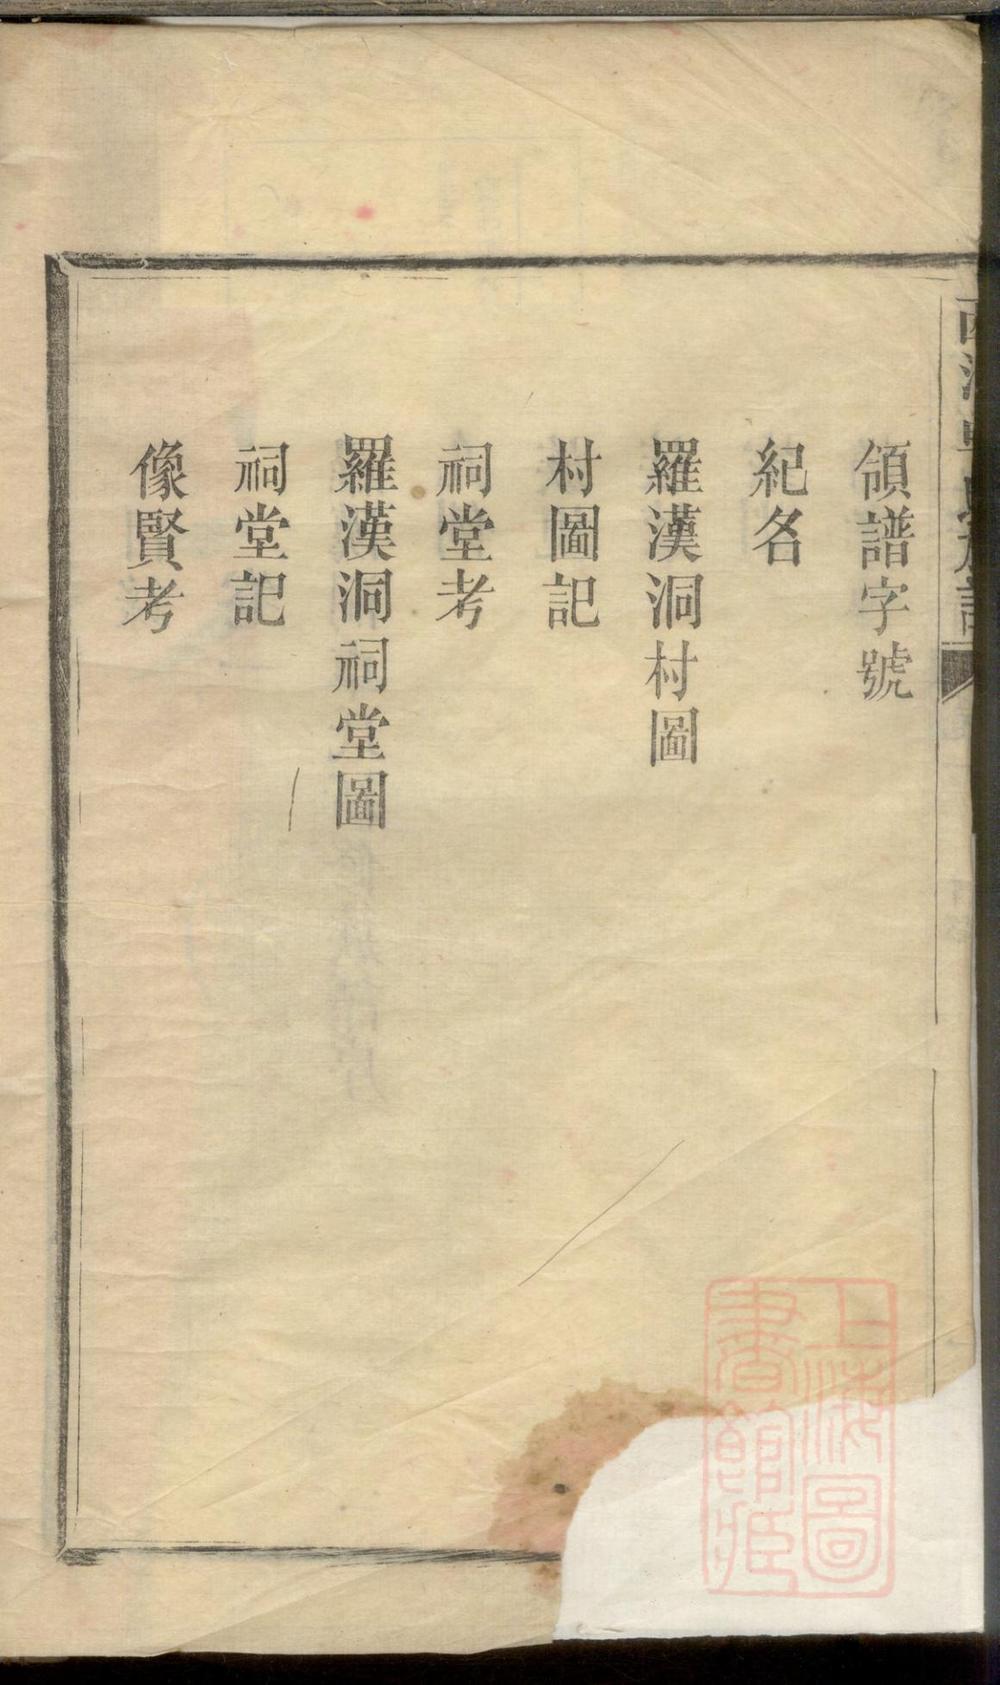 領譜字號
紀名
羅漢洞村圖
村圖記
祠堂考
羅漢洞祠堂圖
祠堂記
像賢考
上海圖
書館藏